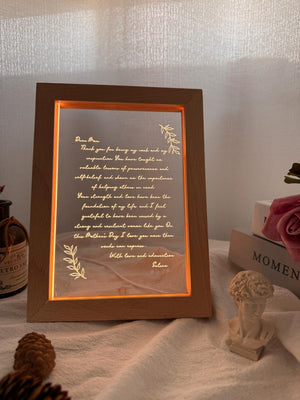 Dear Mom,
Thank you for being my rock and my
inspiration. You have taught me
valuable lessons of perseverance and
self-belief and shown me the importance
of helping others in need.
Your strength and love have been the
foundation of my life and I feel
grateful to have been raised by a
strong and resilient woman like you. On
this Mother's Day I love you more than
words can express.
With love and admiration
MOMEN